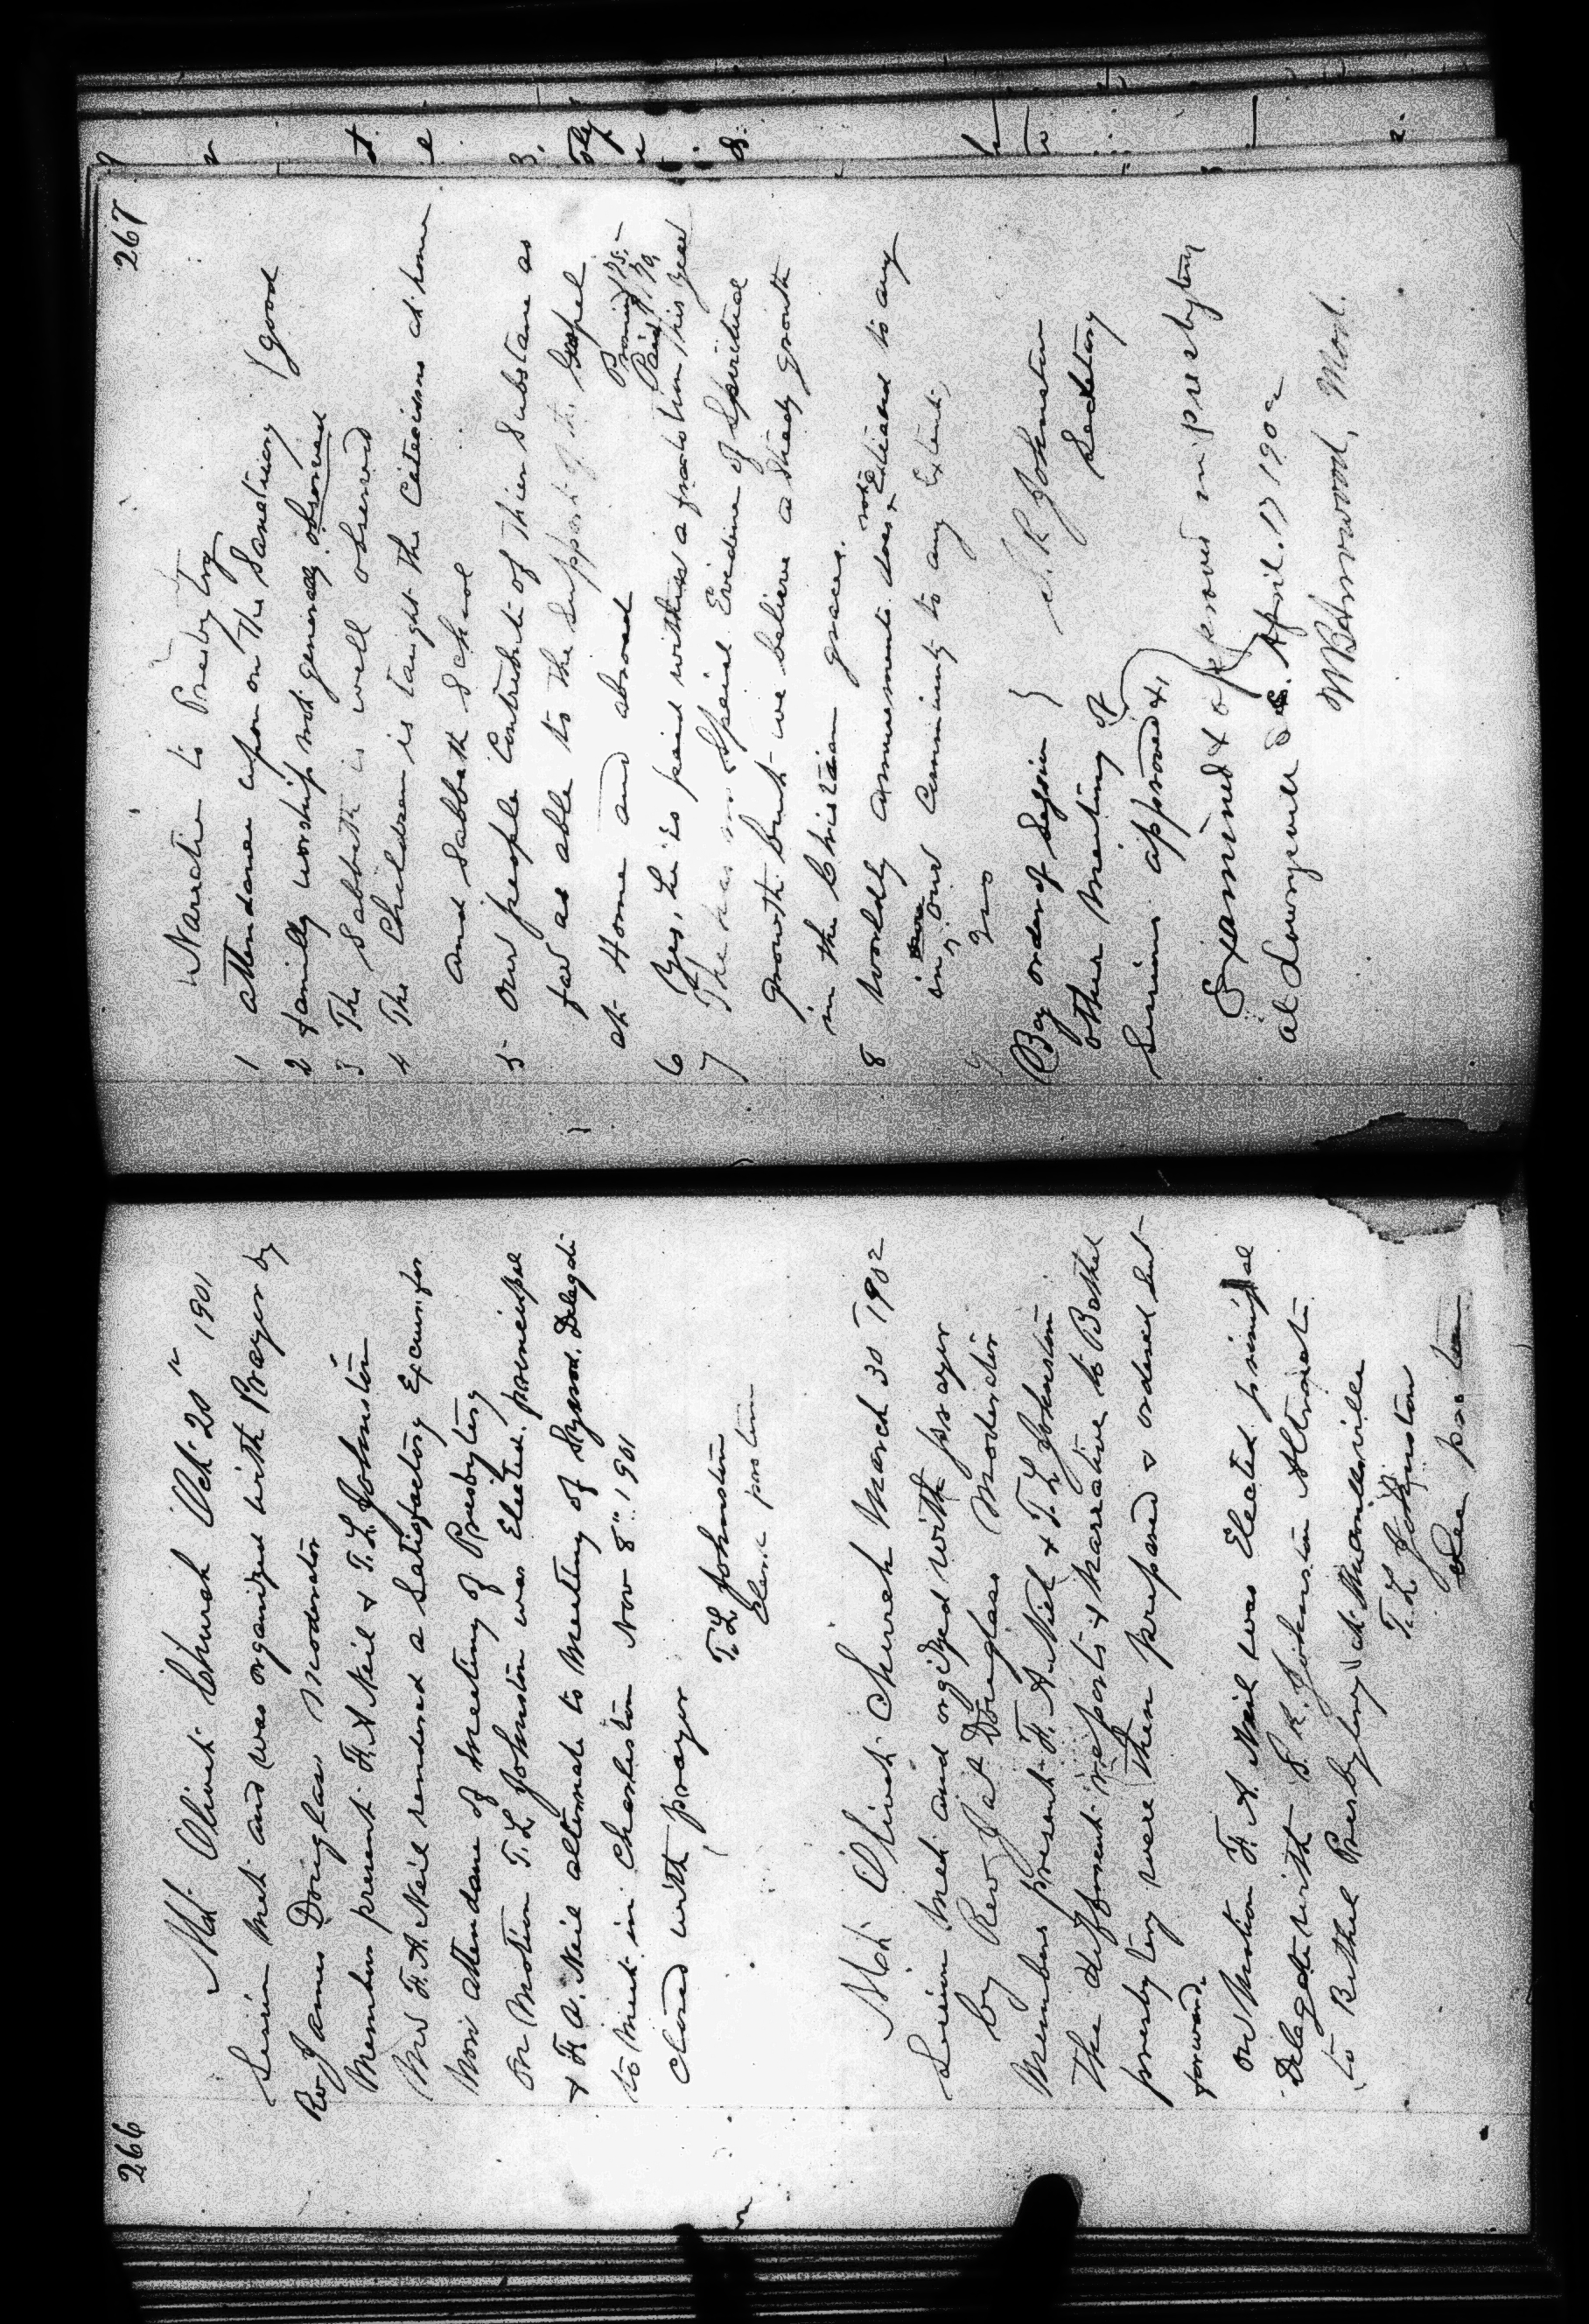 266
Mt. Olivet Church Oct 20" 1901
Session met and was organized with Prayer by
Rev James Douglas Moderator
Members present F. A Neil & T. L. Johnston
Mr F. A. Neil rendered a Satisfactory Excuse for
Non attendance of meeting of Presbytery
On Motion T. L Johnston was Elected principal
& F. A. Neil alternate to Meeting of Synod. Delegate
to meet in Charleston Nov 8" 1901
Closed with prayer
T. L Johnston
Clerk pro tem
Mt. Olivet Church March 30 1902
Session met and orgized with prayer
by Rev Jas Douglas Moderator
Members present F. A. Neil & T. L Johnston
The different reports & Narrative to Bethel
presbytery were then prepared & ordered sent
forward.
on Motion F. A. Neil was Elected principal
Delegate with S. R. Johnston Alternate
to Bethel Presbytery at
T. L Johnston
Sec pro tem
267
Narrative to Presbytry
1 attendance upon on The Sanctuary good
2 family worship not generally observed
3 The Sabbath is well observed
4 The Children is taught the Catecisms at home
and Sabbath School
5 our people Contribute of thier Substance as
far as able to the Support of the Gospel
at Home and abroad
Promised 175.-
Paid 170
6 Yes, he is paid within a fraction this year
7 The has no Special Evidence of Spiritual
growth but we believe a Steady growth
in the Christian graces.
8 Worldly amusements does not Extend to any
in our Community to any Extent,
9 yes
By order of Session
S. R Johnston
Secretary
other meeting of
Session approved
Examined & approved in presbytery
at Lowrysville S. C. April. 17 1902
W B Arrowood, Mod.